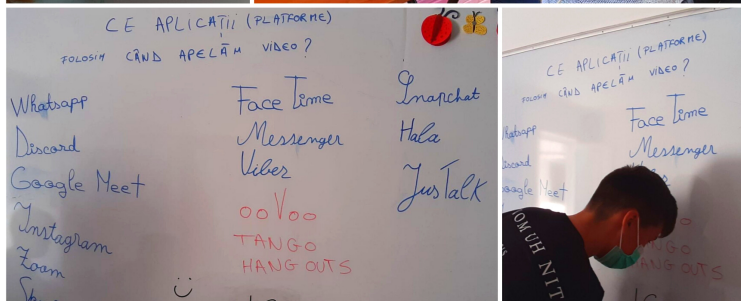 CE APLICAȚII (PLATFORME)
FOLOSIM CÂND APELĂM VIDEO?
Whatsapp
Discord
Google Meet
Instagram
Zoom
FaceTime
Messenger
Viber
ooVoo
TANGO
HANGOUTS
Snapchat
Hala
JusTalk
CE APLICAȚII (PLATFORME)
FOLOSIM CÂND APELĂM VIDEO?
FaceTime
Messenger
HANGOUTS